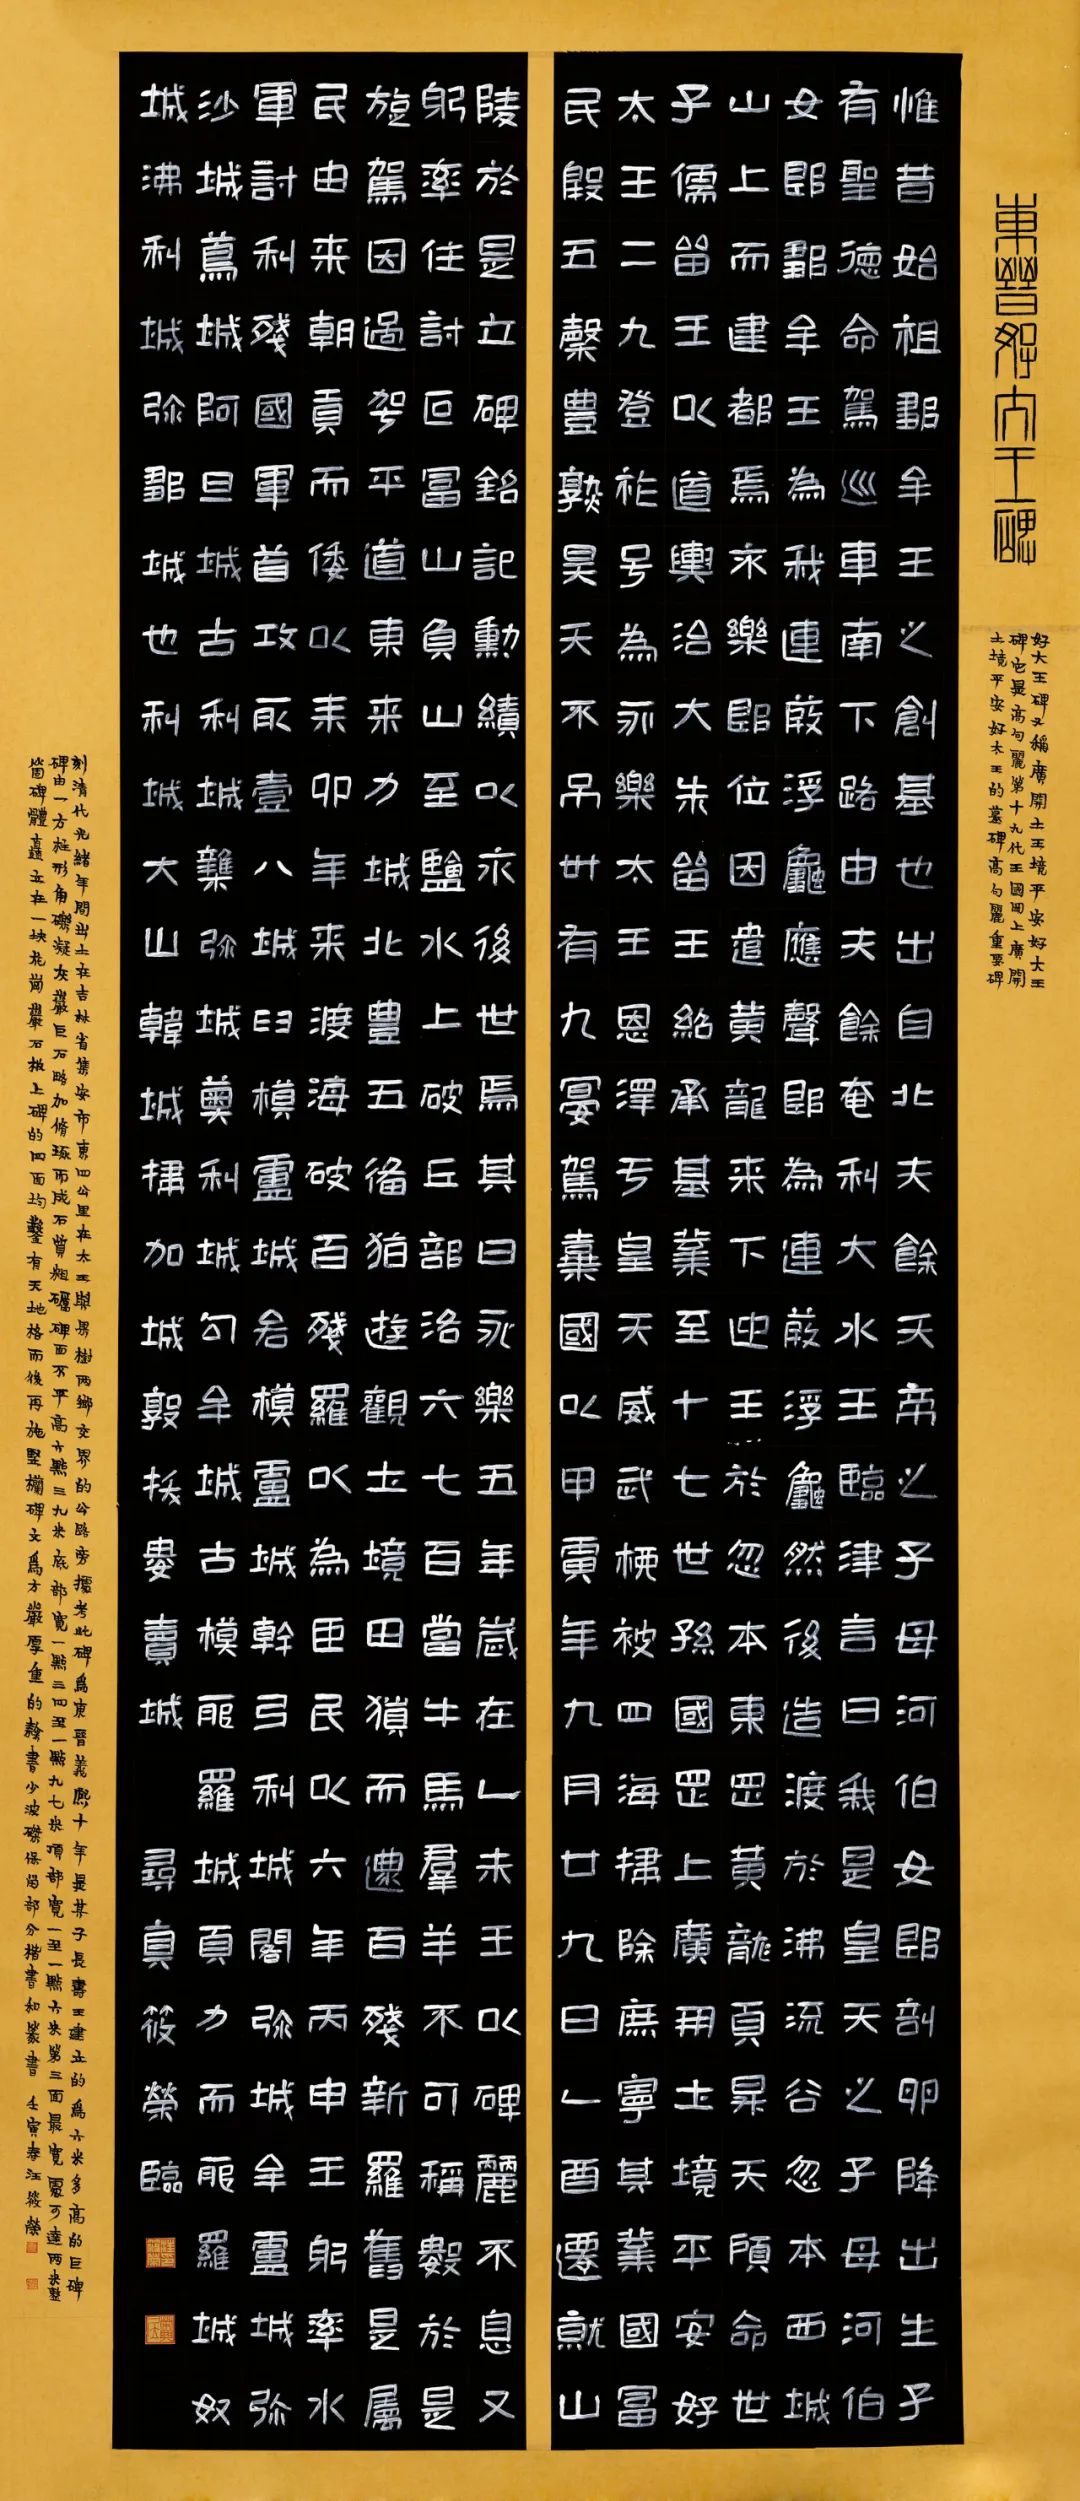 東晉好大王碑
好大王碑又稱廣開土王境平安好大王
碑它是高句麗第十九代王國岡上廣開
土境平安好太王的墓碑高句麗重要碑
惟昔始祖鄒牟王之創基也出自北夫餘天帝之子母河伯女郎剖卵降出生子
有聖德命駕巡車南下路由夫餘奄利大水王臨津言曰我是皇天之子母河伯
女郎鄒牟王為我連葭浮龜應聲即為連葭浮龜然後造渡於沸流谷忽本西城
山上而建都焉永樂即位因遣黃龍来下迎王於忽本東罡黃龍頁昇天顧命世
子儒留王以道輿治大朱留王紹承基業至十七世孫國罡上廣開土境平安好
太王二九登祚号為永樂太王恩澤于皇天威武被四海掃除庶寧其業國富
民殷五穀豊熟昊天不吊卅有九宴駕棄國以甲寅年九月廿九日乙酉遷就山
陵於是立碑銘記勳績以永後世焉其曰永樂五年歲在乙未王以碑麗不息又
躬率住討叵富山負山至鹽水上破丘部洛六七百當牛馬羣羊不可稱數於是
旋駕因過駕平道東来力城北豊五備猶遊觀土境田獵而還百殘新羅舊是属
民由来朝貢而倭以耒卯年来渡海破百殘羅以為臣民以六年丙申王躬率水
軍討利殘國軍首攻取壹八城臼模盧城各模盧城幹弓利城閣弥城牟盧城弥
沙城蔦城阿旦城古利城雜弥城奧利城句牟城古模耶羅城頁力而耶羅城奴
城沸利城弥鄒城也利城大山韓城掃加城敦拔婁賣城 尋真筱榮臨
刻清代光緒年間出土在吉林省集安市東四公里在太王與男樹兩鄉交界的公路旁據考此碑爲東晉義熙十年是其子長壽王建立的爲六米多高的巨碑
碑由一方柱形角礫凝灰巖巨石略加脩琢而成石質粗礪碑面不平高六點三九米底部寬一點三四至一點九七米頂部寬一至一點六米第三面最寬處可達兩米整
箇碑體矗立在一塊花崗巖石板上碑的四面均鑿有天地格而後再施竪欄碑文爲方嚴厚重的隸書少波磔保留部分楷書和篆書 壬寅春汪筱榮